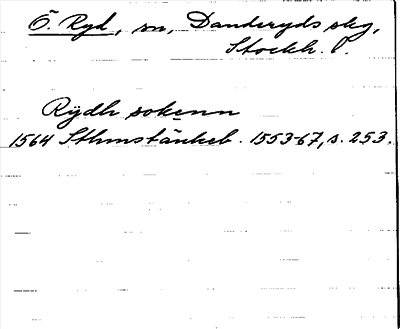 Ö. Ryd, sn, Danderyds skg,
Stockh. l.
Rÿdh sokenn
1564 Sthmstänkeb. 1553-67, s. 253.